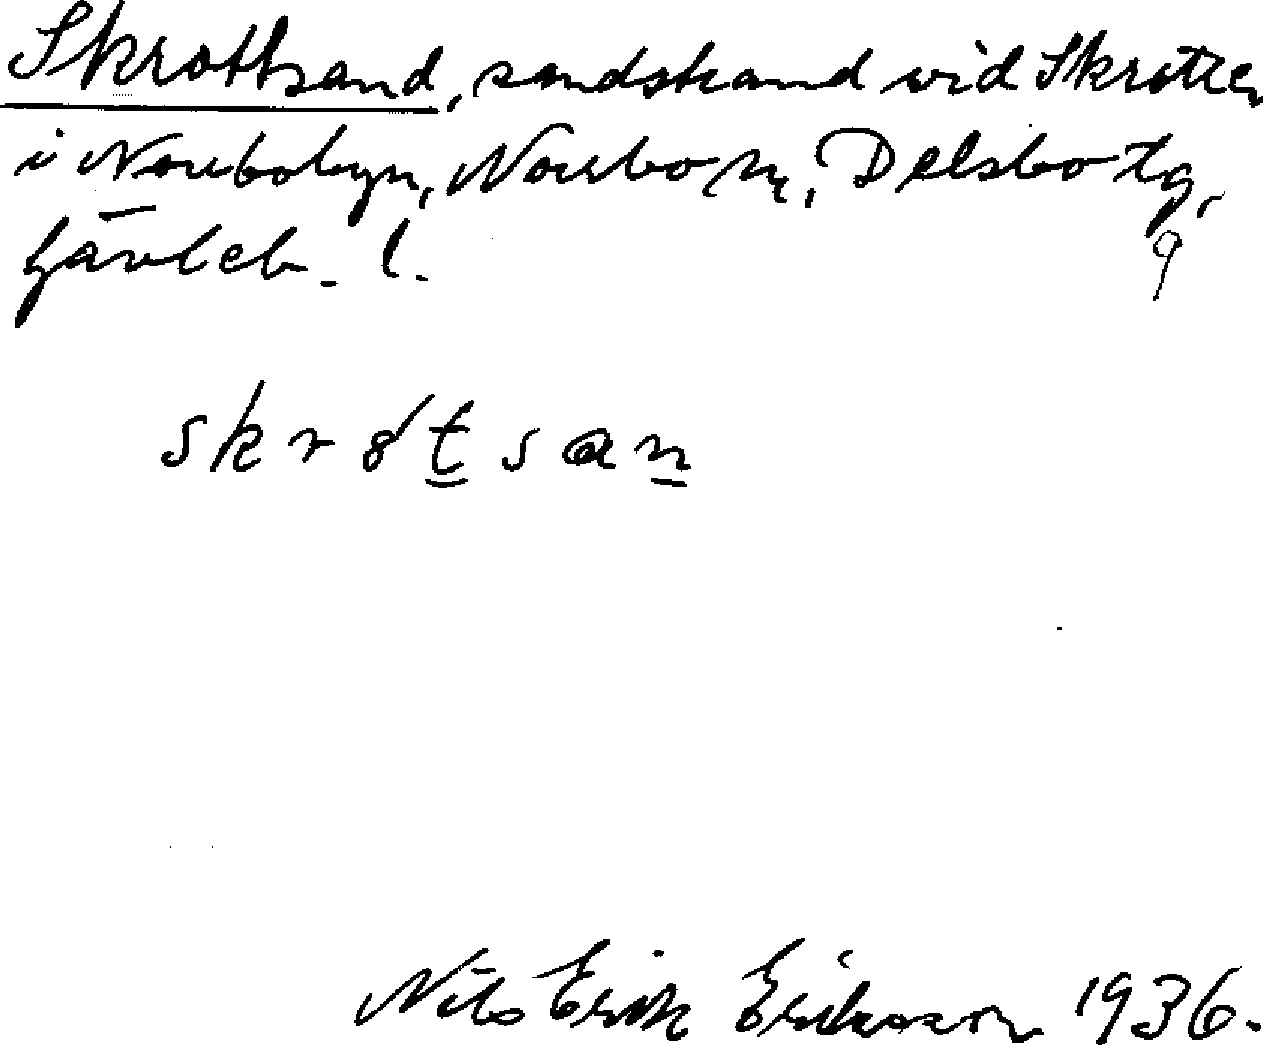 Skrottsand, sandstrand vid Skrotten
i Norrbobyn, Norrbo sn, Delsbo tg,
Gävleb. l.
9
skrotsan
Nils Erik Eriksson 1936.